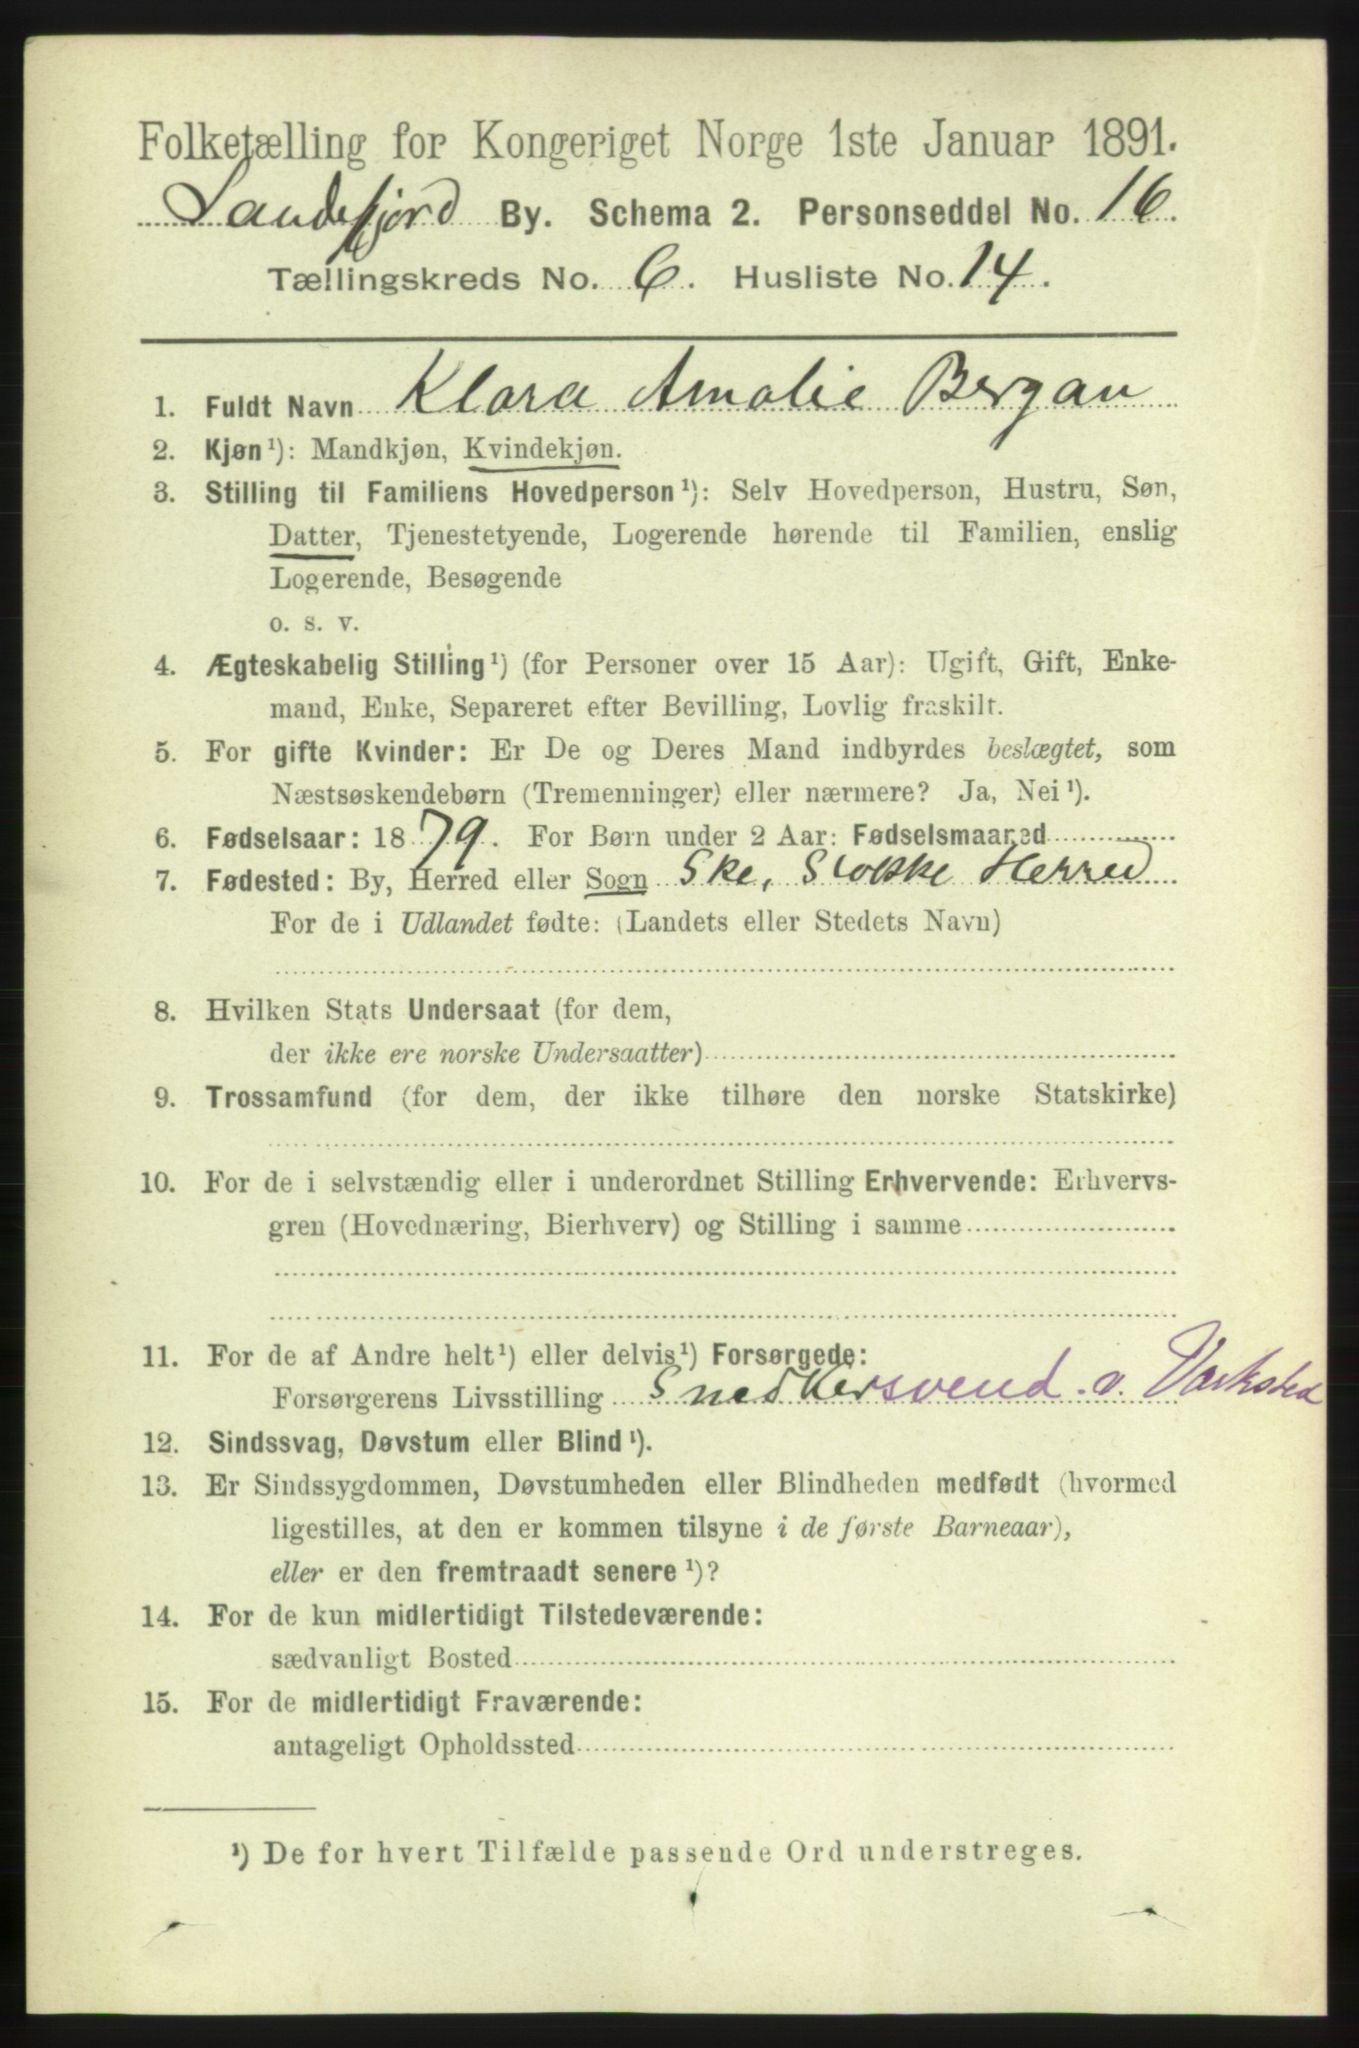 Folketælling for Kongeriget Norge 1ste Januar 1891.
Sandefjord By. Schema 2. Personseddel No. 16.
Tællingskreds No. 6. Husliste No. 14.
1. Fuldt Navn Klara Amalie Bergan
2. Kjøn¹): Mandkjøn, Kvindekjøn.
3. Stilling til Familiens Hovedperson¹): Selv Hovedperson, Hustru, Søn,
Datter, Tjenestetyende, Logerende hørende til Familien, enslig
Logerende, Besøgende
o. s. v.
4. Ægteskabelig Stilling¹) (for Personer over 15 Aar): Ugift, Gift, Enke-
mand, Enke, Separeret efter Bevilling, Lovlig fraskilt.
5. For gifte Kvinder: Er De og Deres Mand indbyrdes beslægtet, som
Næstsøskendebørn (Tremenninger) eller nærmere? Ja, Nei¹).
6. Fødselsaar: 1879. For Børn under 2 Aar: Fødselsmaaned
7. Fødested: By, Herred eller Sogn Ske, Stokke Herred
For de i Udlandet fødte: (Landets eller Stedets Navn)
8. Hvilken Stats Undersaat (for dem,
der ikke ere norske Undersaatter)
9. Trossamfund (for dem, der ikke tilhøre den norske Statskirke)
10. For de i selvstændig eller i underordnet Stilling Erhvervende: Erhvervs-
gren (Hovednæring, Bierhverv) og Stilling i samme
11. For de af Andre helt¹) eller delvis¹) Forsørgede:
Forsørgerens Livsstilling Snedkersvend. a. Værksted
12. Sindssvag, Døvstum eller Blind¹).
13. Er Sindssygdommen, Døvstumheden eller Blindheden medfødt (hvormed
ligestilles, at den er kommen tilsyne i de første Barneaar),
eller er den fremtraadt senere¹)?
14. For de kun midlertidigt Tilstedeværende:
sædvanligt Bosted
15. For de midlertidigt Fraværende:
antageligt Opholdssted
¹) De for hvert Tilfælde passende Ord understreges.